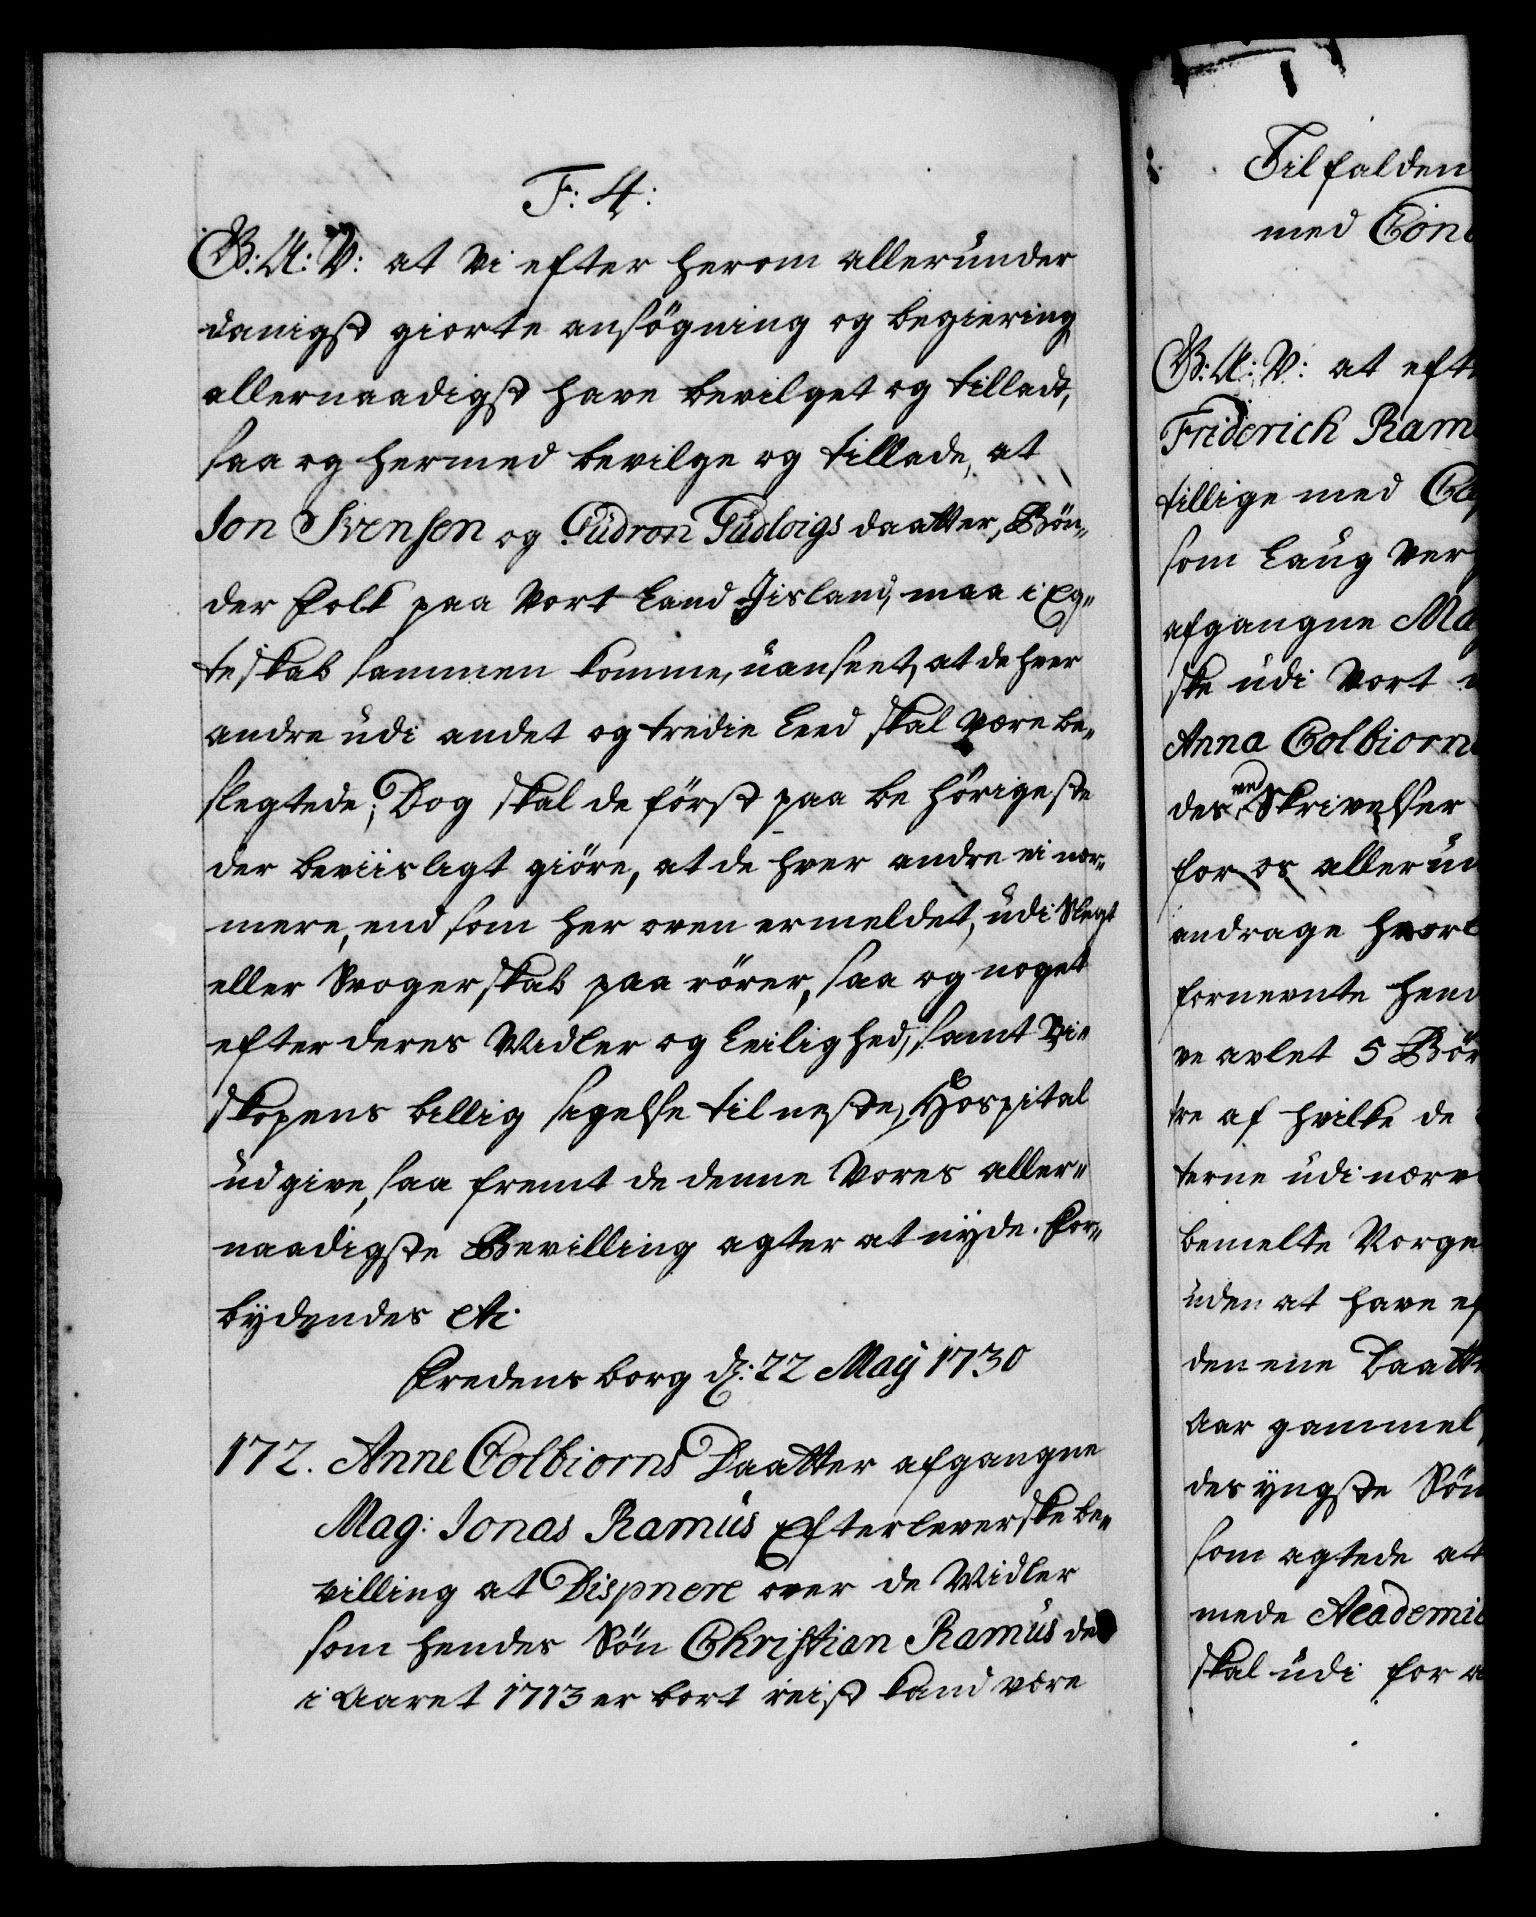 F: 4:
G: A: V: at Vi efter herom allerunder
danigst giorte ansögning og begiering
allernaadigst have bevilget og tilladt,
saa og hermed bevilge og tillade, at
Jon Svensen og Gudron Gudloigs daatter, Bön„
der Folk paa Vort Land Jisland, maa i Eg„
teskab sammen komme, uanseet, at de hver
andre udi andet og tredie Leed skal være be„
slegtede; Dog skal de först paa behörigeste
der beviisligt giöre, at de hver andre ei nær„
mere, end som her oven ermeldet, udi Slegt
eller Svogerskab paarörer, saa og noget
efter deres Midler og Leilighed, samt Bi„
skopens billig sigelse til neste Hospital
udgive, saa fremt de denne Vores aller„
naadigste Bevilling agter at nyde. For„
bydendes etc.
Fredensborg d: 22 May 1730
172. Anne Colbiorns Daatter afgangne
Mag: Jonas Ramus Efterleverske be„
villing at Dispnere over de Midler
som hendes Sön Christian Ramus der
i Aaret 1713 er bort reist kand være
Tilfalden
med
G: A: V: at eft
Friderich Ram
tillige med
som Laug Ver
afgangne Ma
ske udi Vort
Anna Colbiorn
des ved Skrivelser
for os allerun
andrage hvorl
fornevnte hend
ve avlet 5 Bör
tre af hvilke de
terne udi nærv
bemelte Norge
uden at have ef
den ene Daatt
Aar gammel,
des yngste Sön
som agtede at
mede Academie
skal udi for a